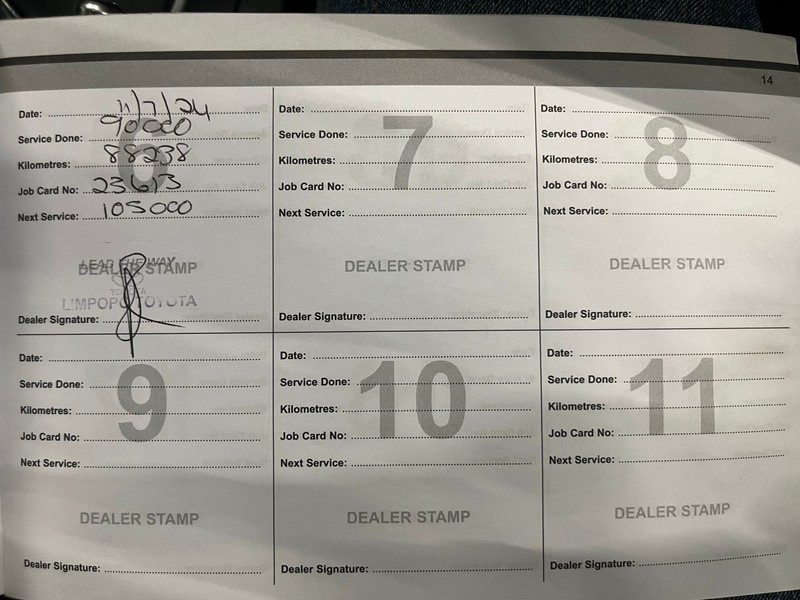 14
Date: 11/7/24
Service Done: 90000
Kilometres: 88238
Job Card No: 23613
Next Service: 105000
LEAD THE WAY
DEALER STAMP
TOYOTA
LIMPOPO TOYOTA
Dealer Signature:
7
Date:
Service Done:
Kilometres:
Job Card No:
Next Service:
DEALER STAMP
Dealer Signature:
8
Date:
Service Done:
Kilometres:
Job Card No:
Next Service:
DEALER STAMP
Dealer Signature:
9
Date:
Service Done:
Kilometres:
Job Card No:
Next Service:
DEALER STAMP
Dealer Signature:
10
Date:
Service Done:
Kilometres:
Job Card No:
Next Service:
DEALER STAMP
Dealer Signature:
11
Date:
Service Done:
Kilometres:
Job Card No:
Next Service:
DEALER STAMP
Dealer Signature: